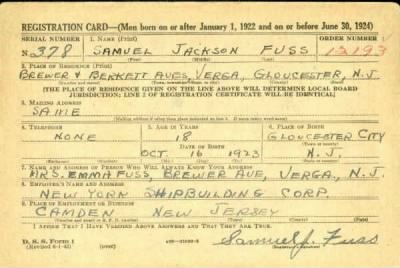 REGISTRATION CARD—(Men born on or after January 1, 1922 and on or before June 30, 1924)
SERIAL NUMBER 1. NAME (Print) ORDER NUMBER
N 378 SAMUEL JACKSON FUSS 12193
(First) (Middle) (Last)
2. PLACE OF RESIDENCE (Print)
BREWER & BERKETT AVES, VERGA, GLOUCESTER, N.J.
(Number and street) (Town, township, village, or city) (County) (State)
[THE PLACE OF RESIDENCE GIVEN ON THE LINE ABOVE WILL DETERMINE LOCAL BOARD
JURISDICTION; LINE 2 OF REGISTRATION CERTIFICATE WILL BE IDENTICAL]
3. MAILING ADDRESS
SAME
4. TELEPHONE 5. AGE IN YEARS 6. PLACE OF BIRTH
NONE 18 GLOUCESTER CITY
DATE OF BIRTH
OCT. 16 1923 N.J.
7. NAME AND ADDRESS OF PERSON WHO WILL ALWAYS KNOW YOUR ADDRESS
MRS. EMMA FUSS, BREWER AVE, VERGA, N.J.
8. EMPLOYER'S NAME AND ADDRESS
NEW YORK SHIPBUILDING CORP.
9. PLACE OF EMPLOYMENT OR BUSINESS
CAMDEN NEW JERSEY
I AFFIRM THAT I HAVE VERIFIED ABOVE ANSWERS AND THAT THEY ARE TRUE.
D. S. S. Form 1
(Revised 6-1-42) (over) Samuel J. Fuss